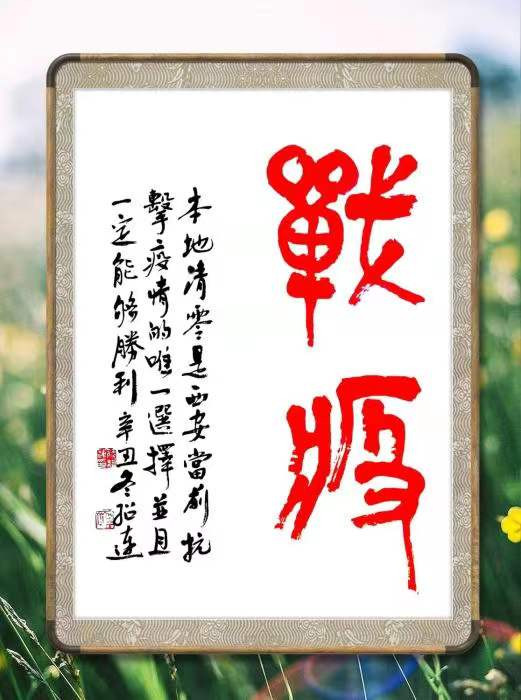 戰疫
本地清零是西安當前抗
擊疫情的唯一選擇並且
一定能够勝利辛丑冬